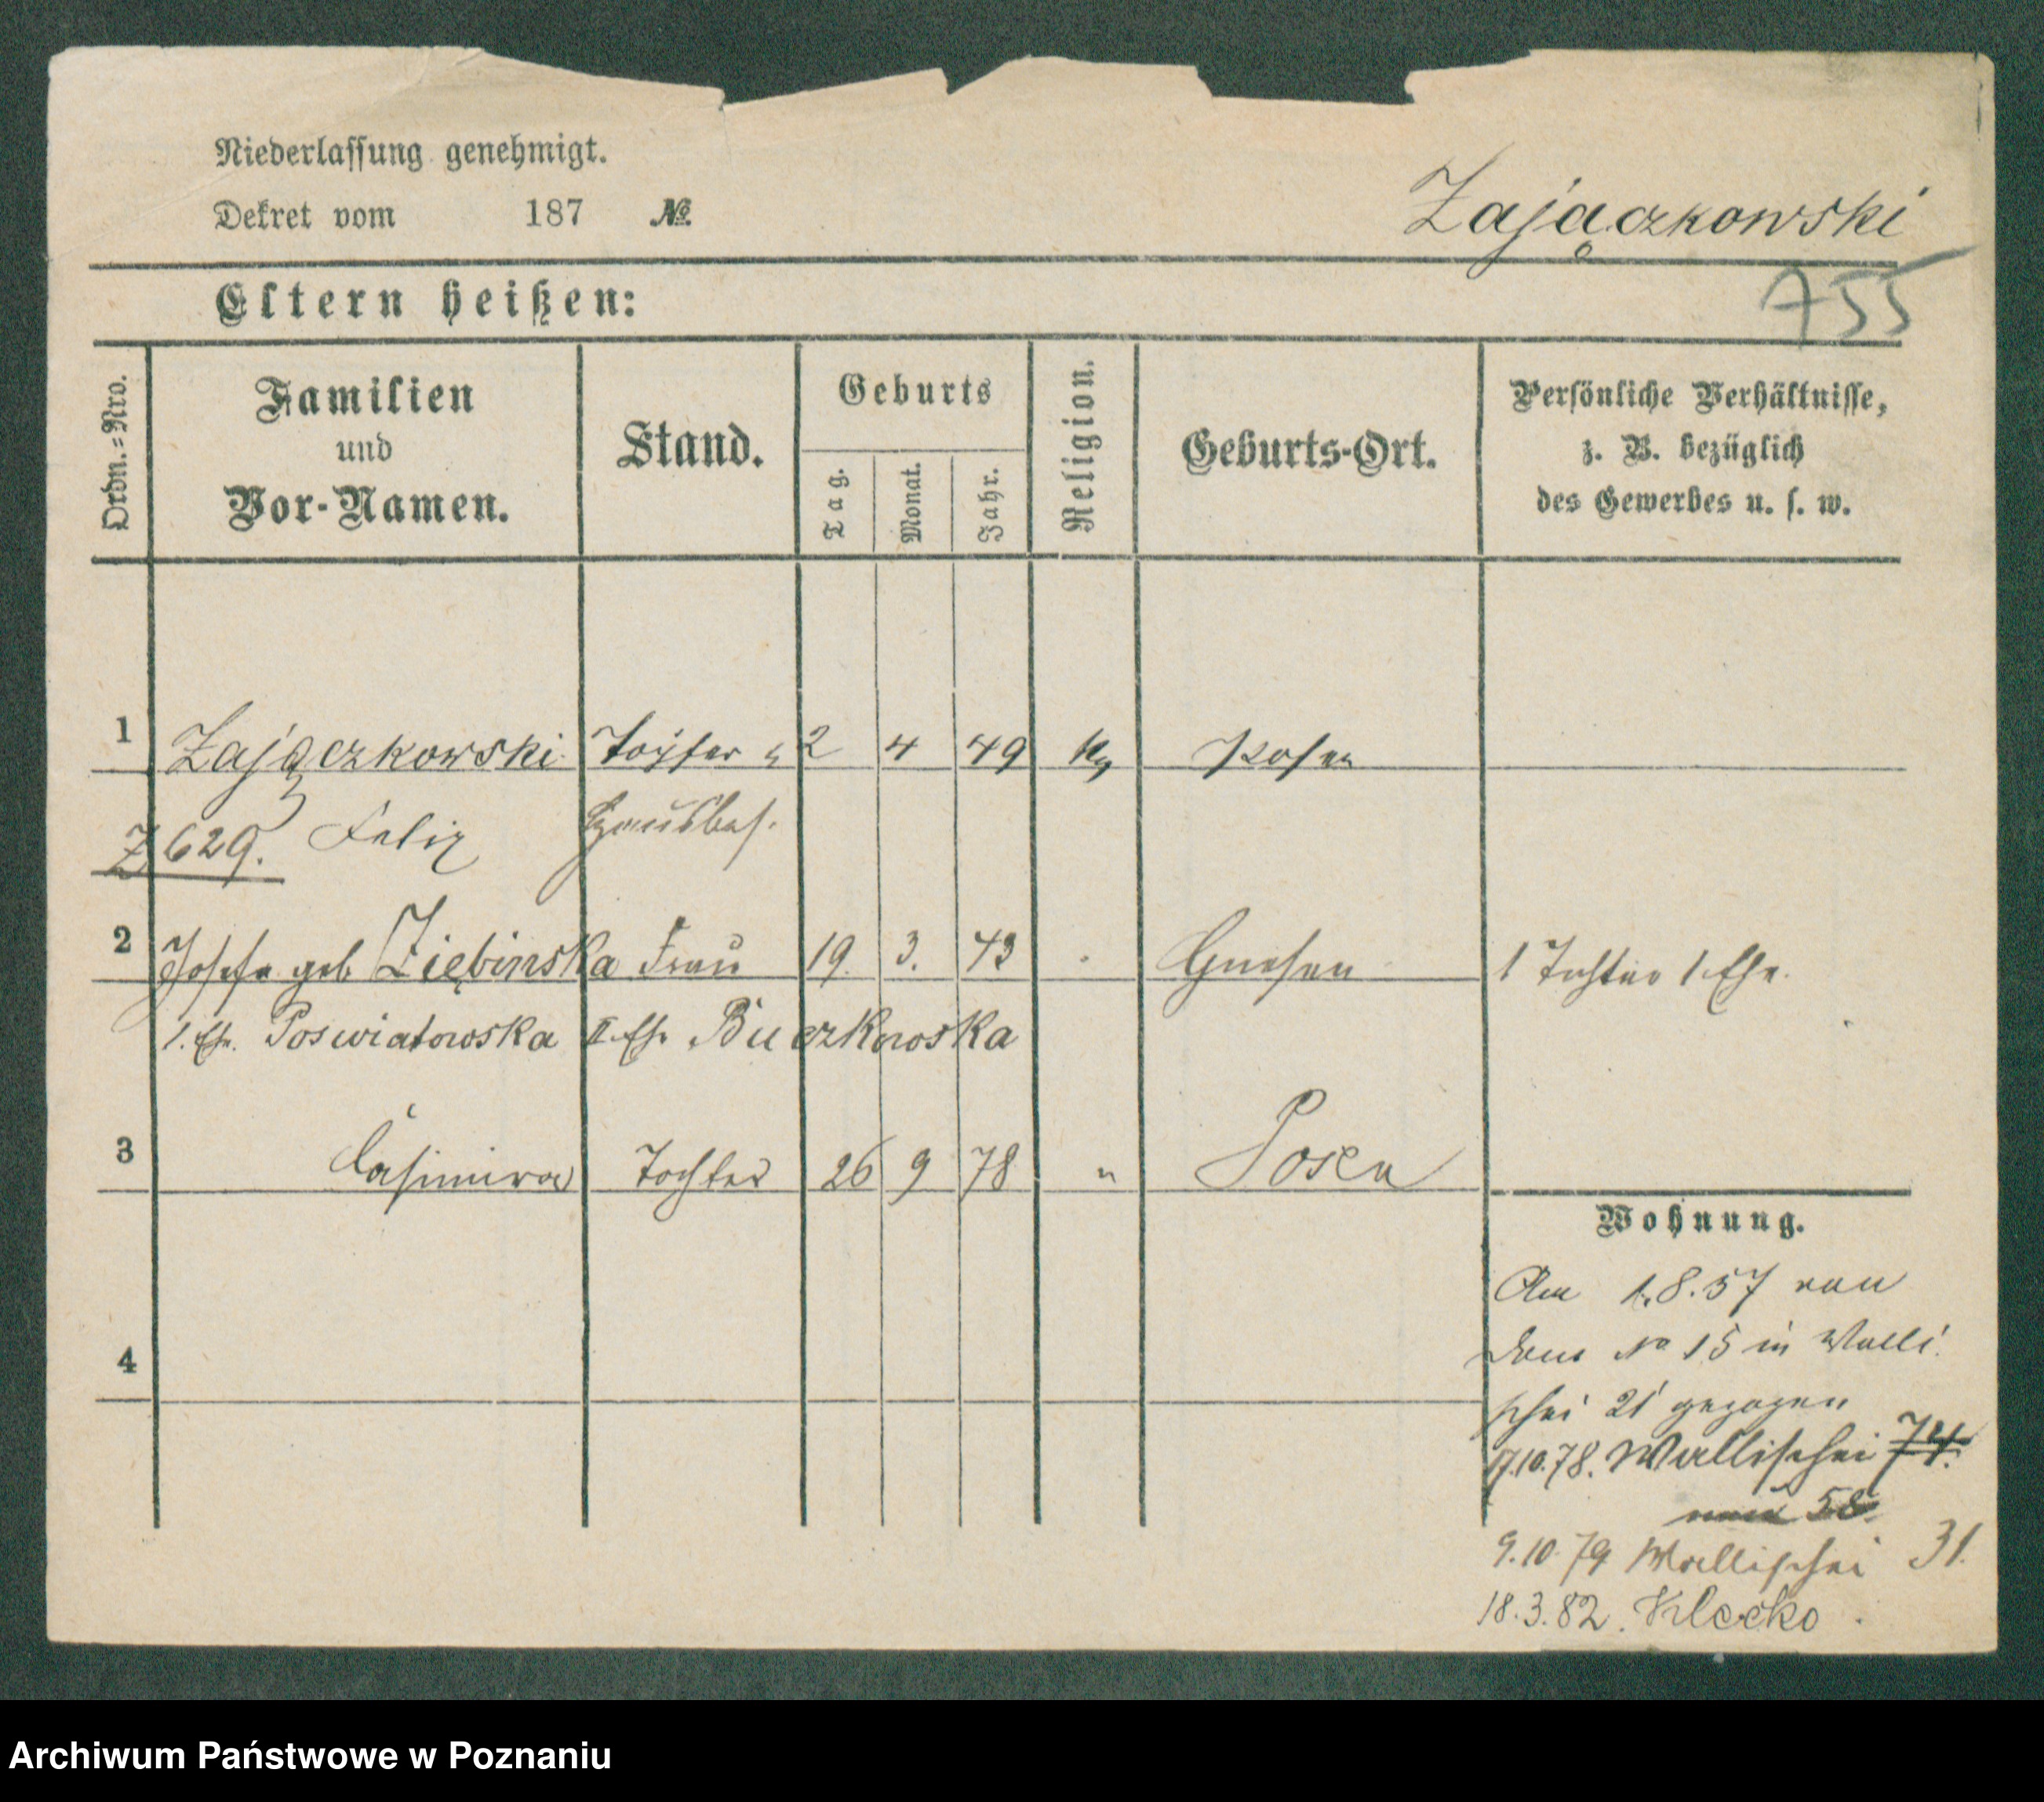 Niederlassung genehmigt.
Dekret vom 187 №
Zajączkowski
755
Eltern heißen:
Ordn.=Nro.
Familien
und
Vor-Namen.
Stand.
Geburts
Tag.
Monat.
Jahr.
Religion.
Geburts-Ort.
Persönliche Verhältnisse,
z. B. bezüglich
des Gewerbes u. s. w.
1 Zajączkowski Töpfer u 2 4 49 Posen
Z 629. Felix Hausbes.
2 Josefa geb Ziębinska Frau 19. 3. 43 Gnesen 1 Tochter 1 Ehe.
1. Ehe. Poswiatowska II Ehe Buczkowska
3 Casimira Tochter 26 9 78 " Posen
Wohnung.
Am 1.8.57 von
No 15 in Walli
schei 21 gezogen
17.10.78. Wallischei 74.
58
9.10.79 Wallischei 31.
18.3.82. Klecko.
4
Archiwum Państwowe w Poznaniu